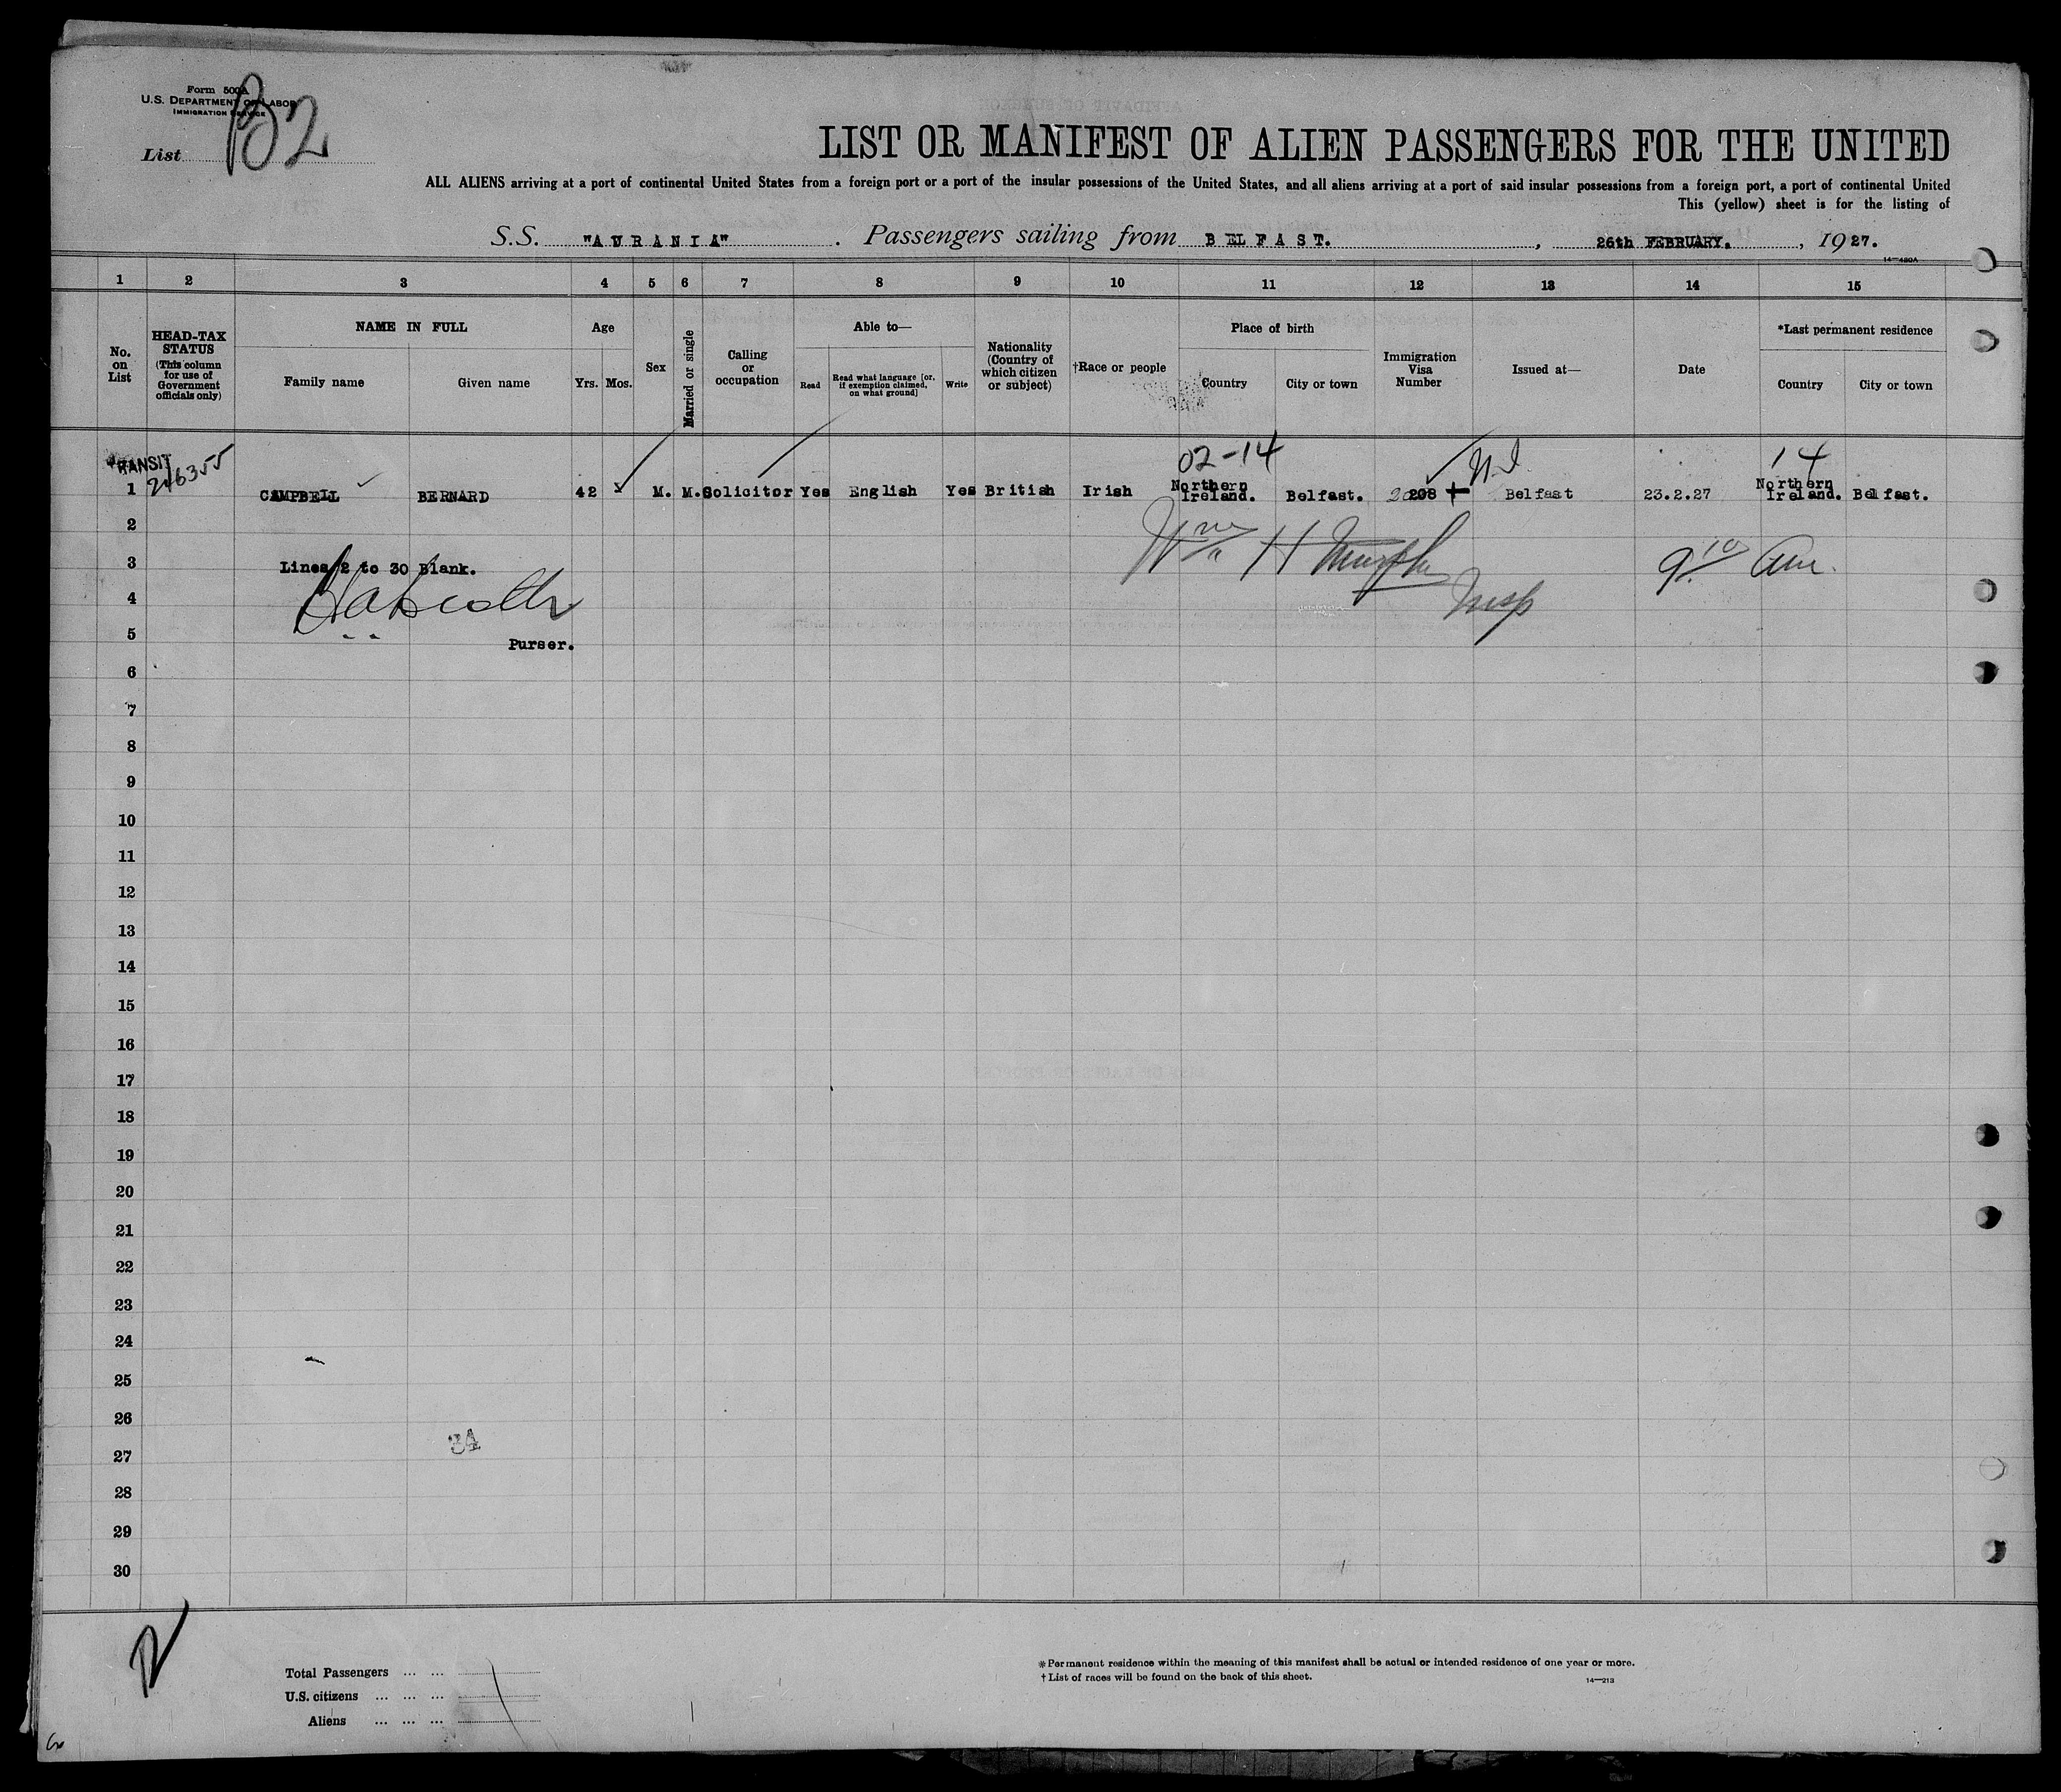 Form 500A
U.S. DEPARTMENT OF LABOR
IMMIGRATION SERVICE
List B2
LIST OR MANIFEST OF ALIEN PASSENGERS FOR THE UNITED
ALL ALIENS arriving at a port of continental United States from a foreign port or a port of the insular possessions of the United States, and all aliens arriving at a port of said insular possessions from a foreign port, a port of continental United
This (yellow) sheet is for the listing of
S.S. "AURANIA". Passengers sailing from BELFAST. , 26th FEBRUARY. , 1927.
14—480A
1 2 3 4 5 6 7 8 9 10 11 12 13 14 15
No. on List
HEAD-TAX STATUS (This column for use of Government officials only)
NAME IN FULL
Family name Given name
Age
Yrs. Mos.
Sex
Married or single
Calling or occupation
Able to—
Read
Read what language [or, if exemption claimed, on what ground]
Write
Nationality (Country of which citizen or subject)
†Race or people
Place of birth
Country City or town
Immigration Visa Number
Issued at—
Date
*Last permanent residence
Country City or town
TRANSIT 02-14 N.I 14
246355
1 CAMPBELL BERNARD 42 M. M. Solicitor Yes English Yes British Irish Northern Ireland. Belfast. 208 Belfast 23.2.27 Northern Ireland. Belfast.
2
Wm H Murphy 9 10 am.
3 Lines 2 to 30 Blank.
4
Insp
5 Purser.
6
7
8
9
10
11
12
13
14
15
16
17
18
19
20
21
22
23
24
25
26
34
27
28
29
30
Total Passengers ... ...
U.S. citizens ... ... ...
Aliens ... ... ...
* Permanent residence within the meaning of this manifest shall be actual or intended residence of one year or more.
† List of races will be found on the back of this sheet.
14—213